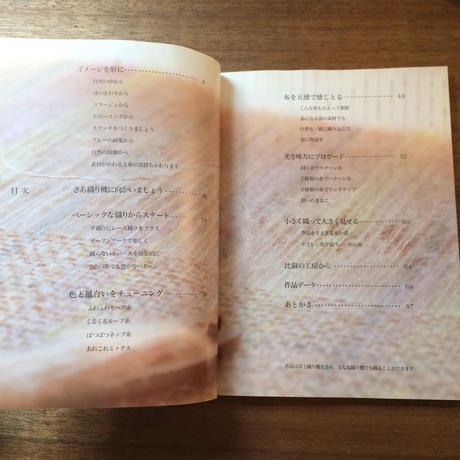 目次
イメージを形に 4
自然の中から
身のまわりから
コラージュから
ドローイングから
スケッチをつくりましょう
グレーの画集から
自然の琉動から
素材がかわると布の表情もかわります
さあ織り機に向かいましょう
ベーシックな織りからスタート
平織りにレース織りをプラス
オープンワークで楽しく
織らないスペースを効果的に
2色の糸でも豊かなパターン
色と風合いをチューニング
ふわふわモヘア糸
くるくるループ糸
ぽつぽつネップ糸
あれこれミックス
布を五感で感じとる 44
こんな布もかえって新鮮
糸になる前の素材でも
自然も一緒に織り込んで
布に物語を
光を味方にブロケード 52
同じ糸でパターンを
2種類の糸でパターンを
3種類の糸でランクアップ
思いのままに
小さく織って大きく見せる 60
比叡の工房から 64
作品データ 68
あとがき 87
作品は卓上織り機を含め、どんな織り機でも織ることができます。